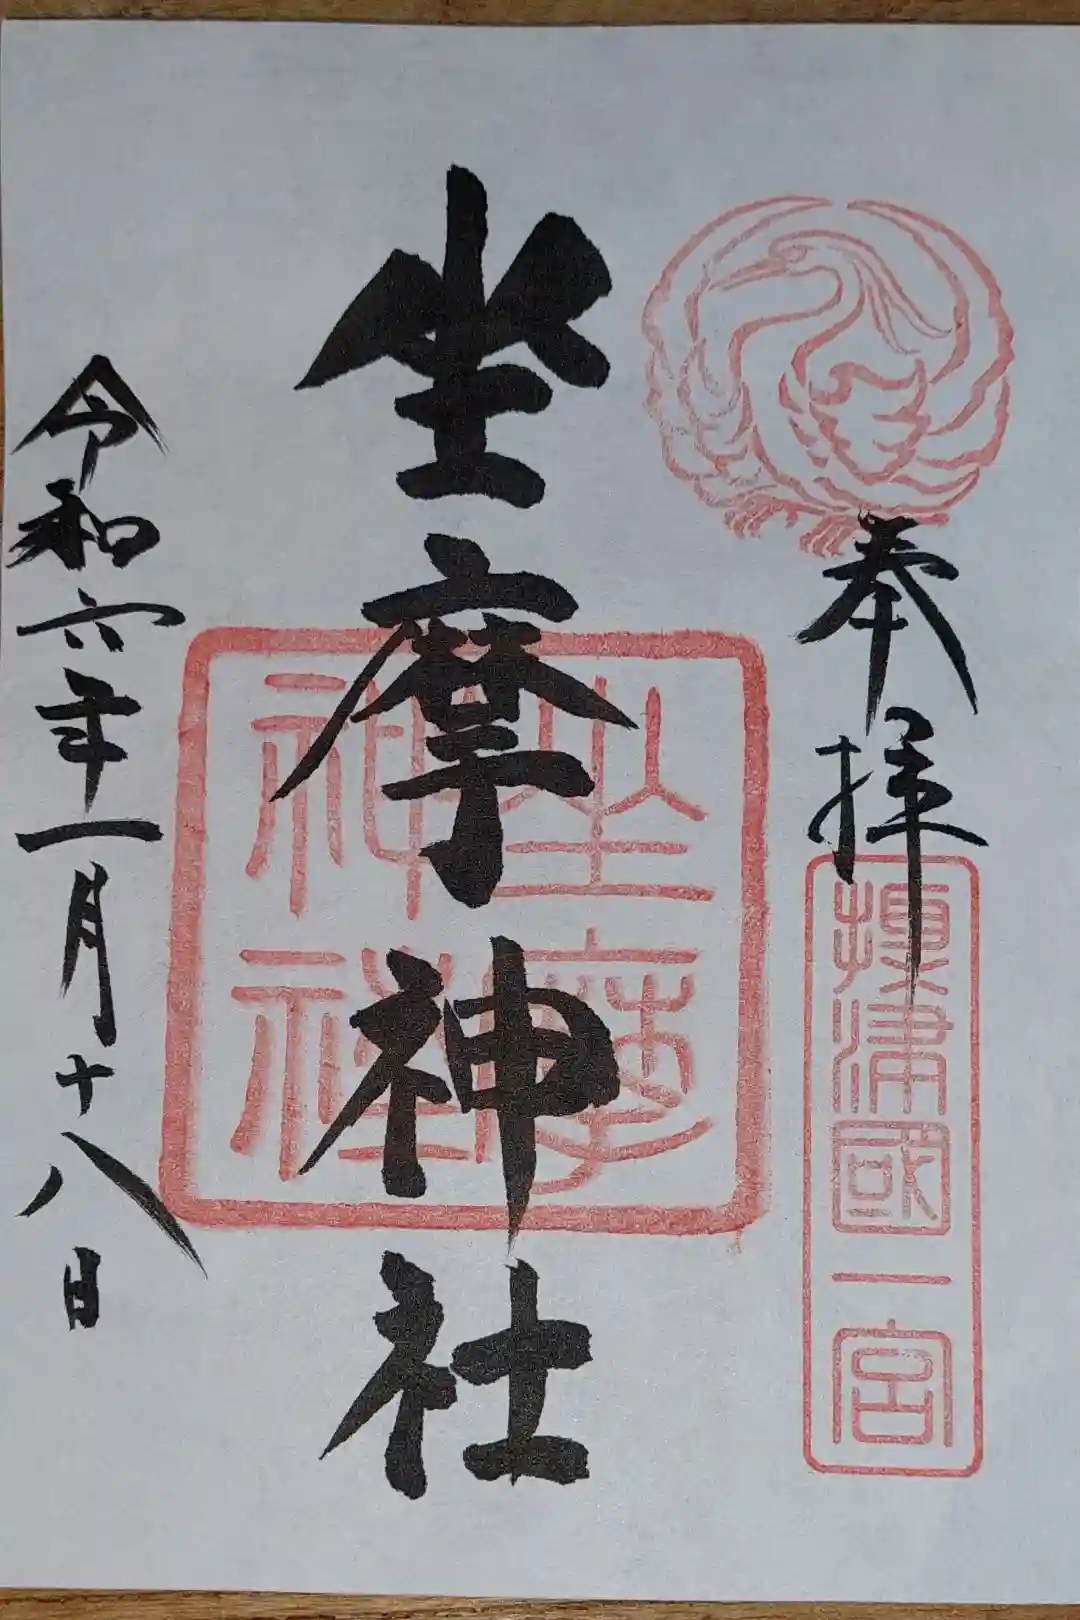 奉拝
攝津國一宮
坐摩神社
坐摩神社
令和六年一月十八日